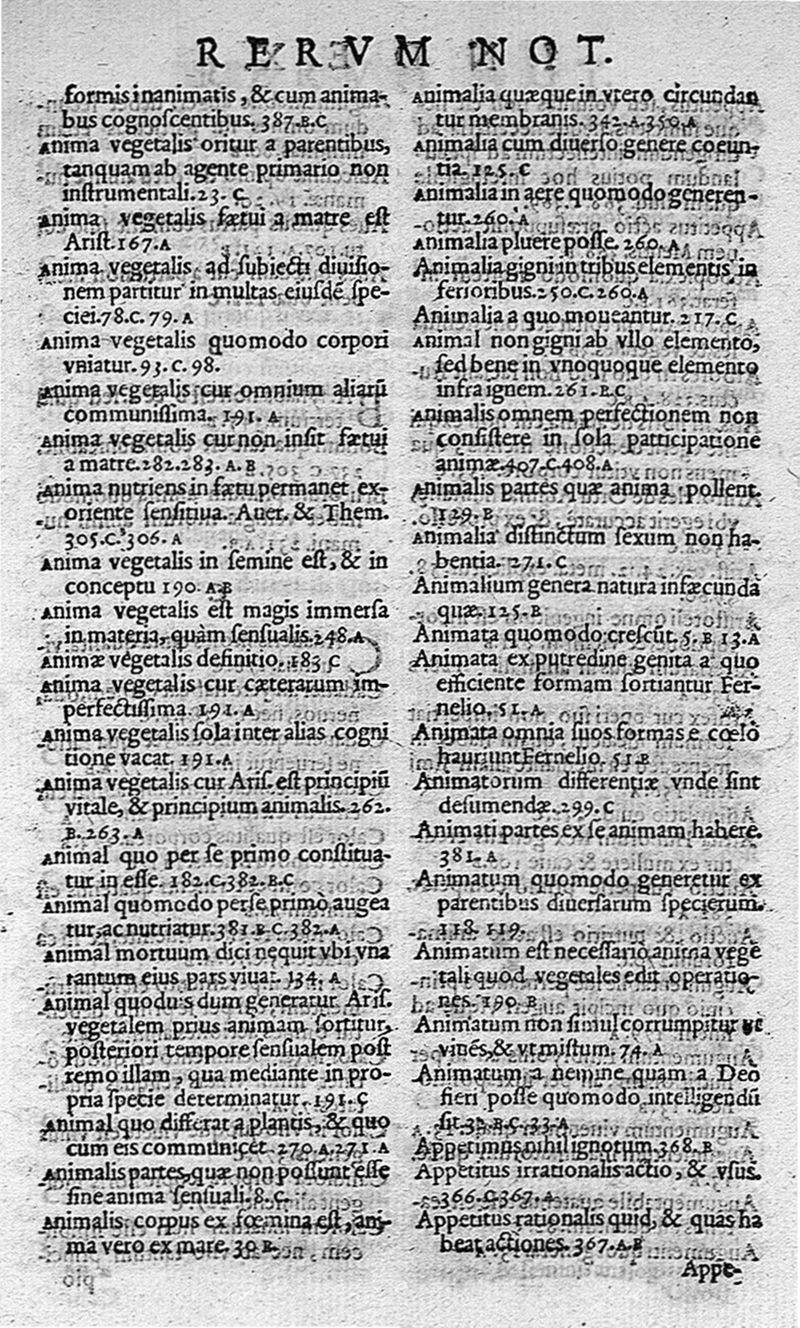 RERVM NOT.
formis inanimatis, & cum anima-
bus cognoſcentibus. 387.B.C
Anima vegetalis oritur a parentibus,
tanquam ab agente primario non
inſtrumentali. 23. C
Anima vegetalis fætui a matre eſt
Ariſt. 167. A
Anima vegetalis ad ſubiecti diuiſio-
nem partitur in multas eiuſdē ſpe-
ciei. 78. C. 79. A
Anima vegetalis quomodo corpori
vniatur. 93. C. 98.
Anima vegetalis cur omnium aliarū
communiſſima. 191. A
Anima vegetalis cur non inſit fætui
a matre. 282. 283. A. B
Anima nutriens in fætu permanet ex-
oriente ſenſitiua. Auer. & Them.
305. C. 306. A
Anima vegetalis in ſemine eſt, & in
conceptu 190. A.B
Anima vegetalis eſt magis immerſa
in materia, quàm ſenſualis. 248. A
Animæ vegetalis definitio. 183 C
Anima vegetalis cur cæterarum im-
perfectiſſima. 191. A
Anima vegetalis ſola inter alias cogni
tione vacat. 191. A
Anima vegetalis cur Ariſ. eſt principiū
vitale, & principium animalis. 262.
B. 263. A
Animal quo per ſe primo conſtitua-
tur in eſſe. 182. C. 382. B.C
Animal quomodo per ſe primo augea
tur, ac nutriatur. 381. B.C. 382. A
Animal mortuum dici nequit vbi vna
tantum eius pars viuat. 134. A
Animal quoduis dum generatur Ariſ.
vegetalem prius animam ſortitur,
poſteriori tempore ſenſualem poſt
remo illam, qua mediante in pro-
pria ſpecie determinatur. 191. C
Animal quo differat a plantis, & quo
cum eis communicet. 270. A. 271. A
Animalis partes, quæ non poſſunt eſſe
ſine anima ſenſuali. 8. C.
Animalis corpus ex fœmina eſt, ani-
ma vero ex mare. 30 B.
Animalia quæque in vtero circundan
tur membranis. 342. A. 350. A
Animalia cum diuerſo genere coeun-
tia. 125. C
Animalia in aere quomodo generen-
tur. 260. A
Animalia pluere poſſe. 260. A
Animalia gigni in tribus elementis in
ferioribus. 250. C. 260. A
Animalia a quo moueantur. 217. C
Animal non gigni ab vllo elemento,
ſed bene in vnoquoque elemento
infra ignem. 261. B.C
Animalis omnem perfectionem non
conſiſtere in ſola participatione
animæ. 407. C. 408. A
Animalis partes quæ anima pollent.
129. B
Animalia diſtinctum ſexum non ha-
bentia. 271. C
Animalium genera natura infæcunda
quæ. 125. B
Animata quomodo creſcūt. 5. B 13. A
Animata ex putredine genita a quo
efficiente formam ſortiantur Fer-
nelio. 51. A
Animata omnia ſuos formas e cœlo
hauriunt Fernelio. 51. B
Animatorum differentiæ vnde ſint
deſumendæ. 299. C
Animati partes ex ſe animam habere.
381. A
Animatum quomodo generetur ex
parentibus diuerſarum ſpecierum.
118. 119.
Animatum eſt neceſſario anima vege
tali quod vegetales edit operatio-
nes. 190. B
Animatum non ſimul corrumpitur vt
vinēs, & vt miſtum. 74. A
Animatum a nemine quam a Deo
fieri poſſe quomodo intelligendū
ſit. 32. B.C. 33. A
Appetimus nihil ignotum. 368. B
Appetitus irrationalis actio, & vſus.
366. C. 367. A
Appetitus rationalis quid, & quas ha
beat actiones. 367. A.B
Appe-